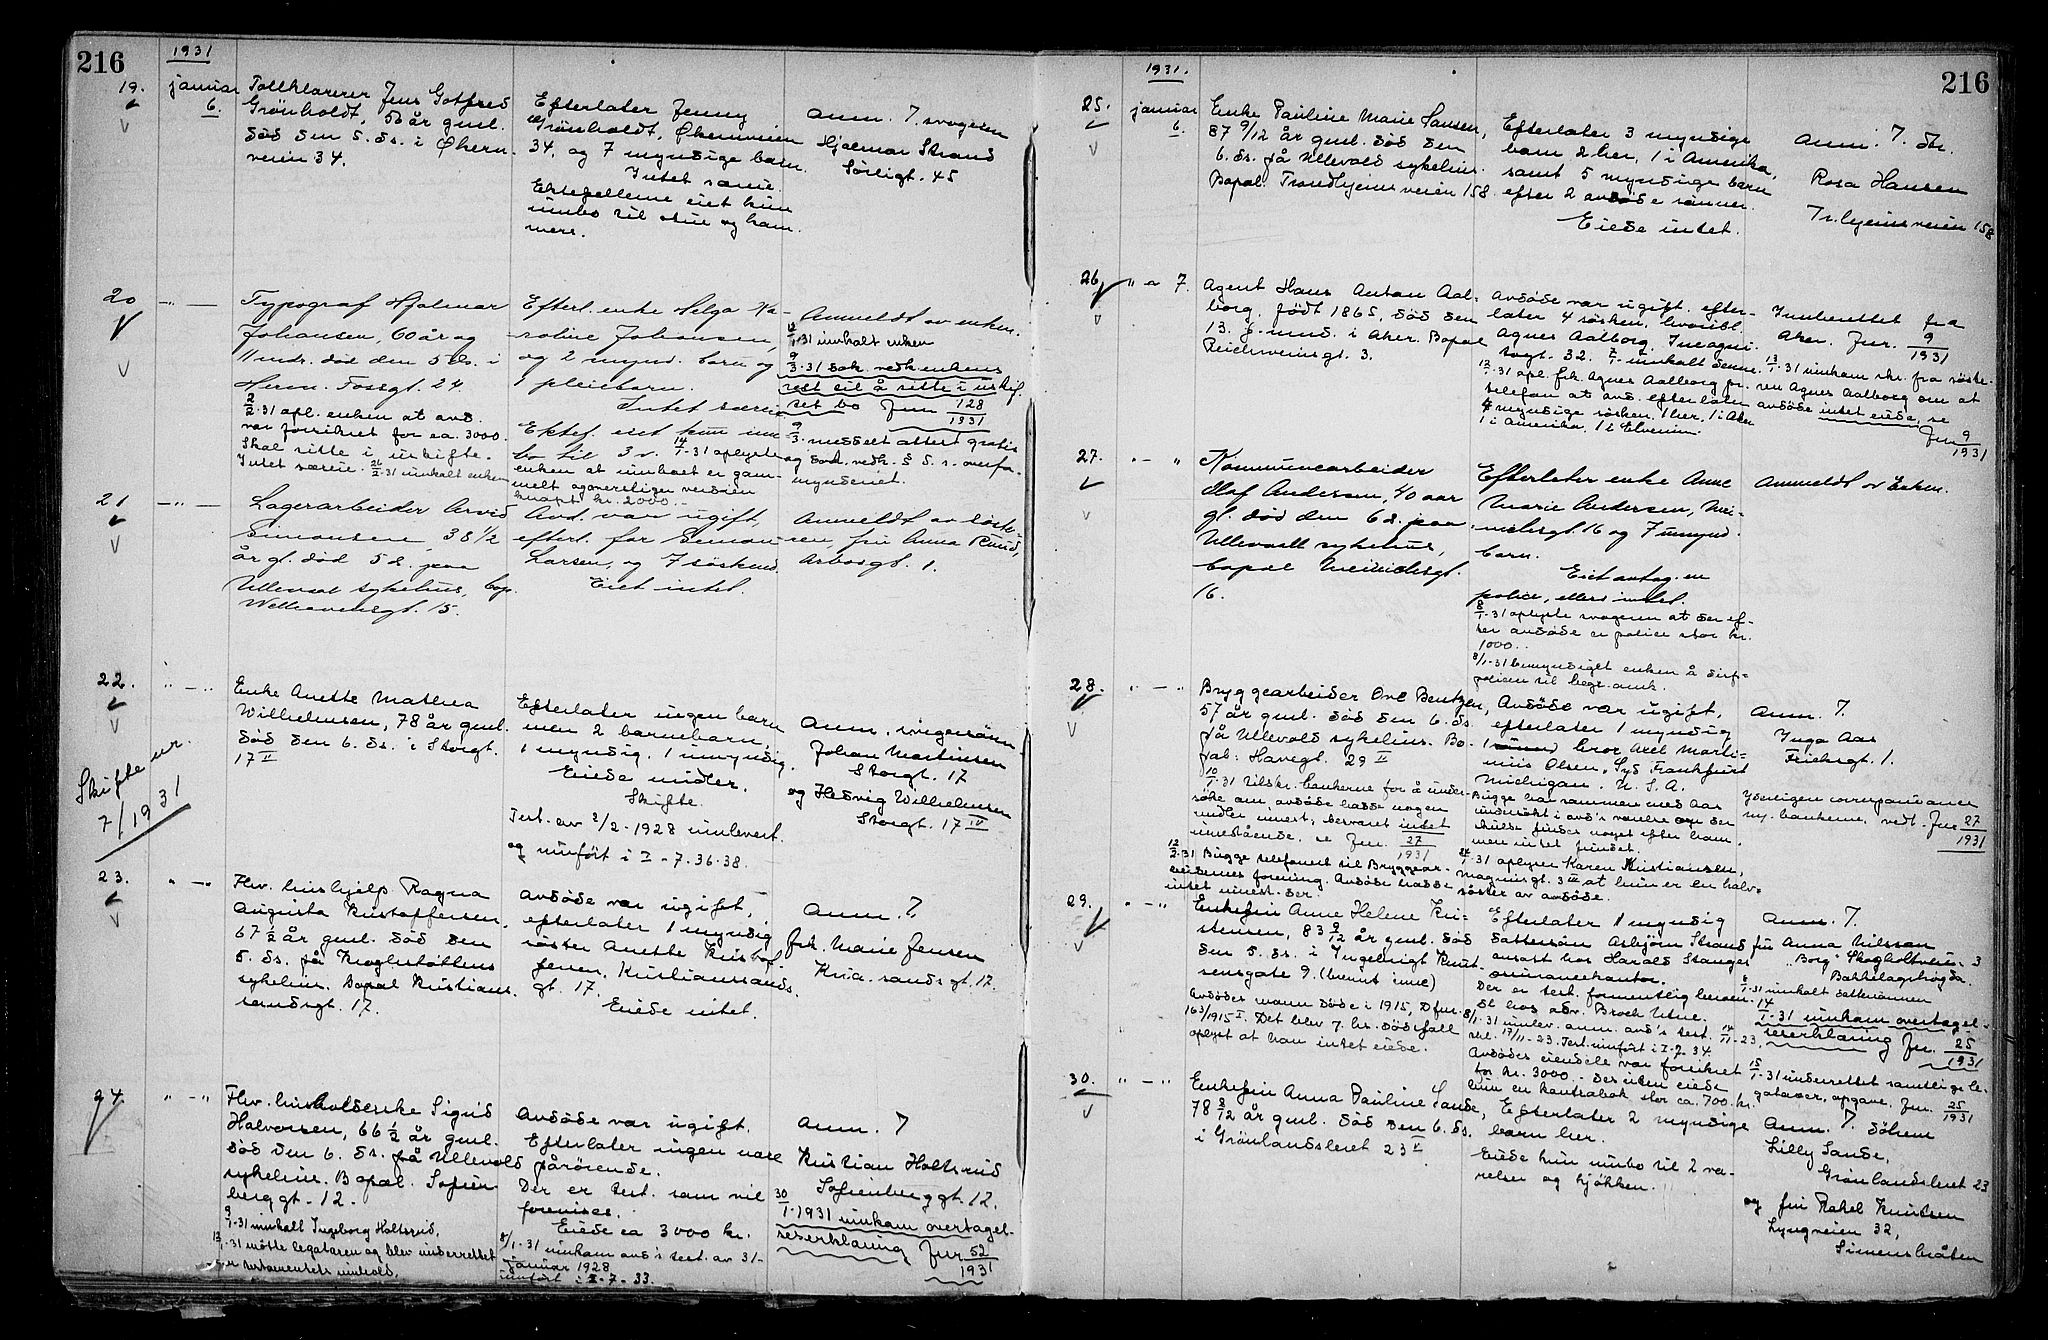 216
1931
19.
januar
6.
Tollklarerer Jens Gotfred
Grönholdt, 50 år gml.
död den 5. ds. i Økern-
veien 34.
Efterlater Jenny
Grönholdt, Økernveien
34, og 7 myndige barn.
Intet særeie.
Ektefellene eiet kun
innbo til stue og kam-
mers.
Anm. 7. svogeren
Hjalmar Strand
Sörligt. 45
20
Typograf Hjalmar
Johansen, 60 år og
11 mdr. död den 5 ds. i
Herm. Fossgt. 24.
2/2-31 opl. enken at avd.
var forsikret for ca. 3000.
Skal sitte i uskifte.
Intet særeie. 21/2-31 innkalt enken
Efterl. enke Helga Ka-
roline Johansen,
og 2 mynd. barn og
1 pleiebarn.
Intet særeie
Ektef. eiet kun inn-
bo til 3 v. 14/1-31 oplyste
enken at innboet er gam-
melt og verdien
knapt kr. 2000.
Anmeldt av enken.
1-31 innkalt enken
9/3-31 dok. vedk. enkens
rett til å sitte i uskif-
tet bo Jnr 128/1931
9/3 meddelt attest gratis
og dok. vedk. § 5. s. overfo-
mynderiet.
21
Lagerarbeider Arvid
Simonsen, 38 1/2
år gl. död 5 d. paa
Ullevaal sykehus, bop.
Welhavensgt. 15.
Avd. var ugift,
efterl. far Simon
Larsen, og 7 söskend.
Eiet intet.
Anmeldt av söste-
ren, fru Anna Ruud,
Arbosgt. 1.
22.
Skifte nr.
7/1931
Enke Anette Mathea
Wilhelmsen, 78 år gml.
död den 6. ds. i Storgt.
17 II
Efterlater ingen barn
men 2 barnebarn,
1 myndig, 1 umyndig.
Eiede midler.
Skifte.
Test. av 2/2-1928 innlevert
og innfört i I-7.36-38.
Anm. svigersönn
Johan Martinsen
Storgt. 17
og Hedvig Wilhelmsen
Storgt. 17 IV
23.
Fhv. hushjelp Ragna
Augusta Kristoffersen,
67 1/2 år gml. död den
5. ds. på Krohgstöttens
sykehus. Bopæl Kristians-
sandsgt. 17.
Avdöde var ugift,
efterlater 1 myndig
söster Anette Kristof-
fersen, Kristiansands-
gt. 17.
Eiede intet.
Anm. 7.
frk. Marie Jensen
Kria.sands gt. 17.
24.
Fhv. husholderske Sigrid
Halvorsen, 66 1/2 år gml.
död den 6. ds. på Ullevold
sykehus. Bopæl. Sofien-
berggt. 12.
9/1-31 innkalt Ingeborg Holtsrud.
13/1-31 mötte legataren og blev underrettet
om testamentets innhold.
Avdöde var ugift.
Efterlater ingen nære
pårörende.
Der er test. som vil
forevises.
Eiede ca 3000 kr.
8/1-31 innkom avd's test. av 31-
januar 1928
innfört i I-7-33.
Anm. 7
Kristian Holtsrud
Sofienberggt. 12.
30/1-1931 innkom overtagel-
seserklæring Jnr 52/1931
216
1931.
25.
januar
6.
Enke Pauline Marie Hansen,
87 9/12 år gml. död den
6. ds. på Ullevold sykehus.
Bopæl: Trondhjemsveien 158.
Efterlater 3 myndige
barn 2 her, 1 i Amerika,
samt 5 myndige barn
efter 2 avdöde sönner.
Eiede intet.
Anm. 7. dtr.
Rosa Hansen
Tr.hjemsveien 158
26.
7.
Agent Hans Anton Aal-
borg, födt 1865, död den
13. f. mnd. i Aker. Bopæl
Reichweinsgt. 3.
Avdöde var ugift. efter-
later 4 sösken, hvoribl.
Agnes Aalborg, Incogni-
togt. 32. 7/1 innkalt denne.
12/1-31 opl. frk. Agnes Aalborg pr.
telefon at avd. efterlater
4 myndige sösken, 1 her, 1 i Aker
1 i Amerika, 1 i Elverum.
Innberettet fra
Aker. Jnr. 9/1931
13/1-31 innkom skr. fra söste-
ren Agnes Aalborg om at
avdöde intet eiede, se
Jnr 9/1931
27.
Kommunearbeider
Olaf Andersen, 40 aar
gl. död den 6 d. paa
Ullevaall sykehus,
bopæl Meinichsgt.
16.
Efterlater enke Anne
Marie Andersen, Mei-
nichsgt. 16 og 7 umynd.
barn.
Eiet antag. en
police, ellers intet.
8/1-31 oplyste svogeren at der ef-
ter avdöde er police stor kr.
1000..
8/1-31 bemyndiget enken å disp.
policen til begr. omk.
Anmeldt av Enken.
28.
Bryggearbeider Ove Bentzen,
57 år gml. död den 6. ds.
på Ullevold sykehus. Bo-
pæl: Havegt. 29 II
10/1-31 tilskr. bankerne for å under-
söke om avdöde hadde nogen
midler innest; besvaret intet
innestående. se Jnr. 27/1931
12/2-31 Bugge telefonert til Bryggear-
beidernes forening. Avdöde hadde
intet innest. der.
Avdöde var ugift,
efterlater 1 myndig
bror Axel Marti-
nius Olsen, Syd Frankfurt
Michigan. U. S. A.
Bugge har sammen med Aas
undersökt i avd's værelse om der
skulde findes noget efter ham,
men intet fundet.
24/1-31 oplyser Karen Kristiansen,
Magnusgt. 3 III at hun er en halv-
söster av avdöde.
Anm. 7.
Inga Aas
Friisksgt. 1.
Ytterligere correspondanse
m. bankerne, vedl. Jnr 27/1931
29.
Enkefru Anne Helene Kri-
stensen, 83 9/12 år gml. död
den 5. ds. i Ingelbrigt Knut-
sensgate 9. (brennt inne)
Avdödes mann döde i 1915, D. fnr.
163/1915 I. Det blev 7. br. dödsfall
oplyst at han intet eiede.
Efterlater 1 myndig
dattersönn Asbjörn Strand
ansatt hos Harald Stanges
annoncekontor.
Der er test. formentlig beroen-
de hos adv. Broch Utne.
8/1-31 innlev. anm. avd's test. 14/11-23,
kod. 17/11-23. Test. innfört i I-7-34.
Avdödes eiendele var forsikret
for kr. 3000.- Desuten eiede
hun en kontrabok stor ca. 700. kr.
Anm. 7.
fru Anna Nilssen
"Borg" Skogholtveien 3
Bekkelagshögda.
8/1-31 innkalt dattersönnen
14/1-31 innkom overtagel-
seserklæring Jnr. 25/1931
15/1-31 underrettet samtlige le-
gatarer, opgave, Jnr. 25/1931
30.
Enkefru Anna Pauline Sande,
78 8/12 år gml. död den 6. ds.
i Grönlandsleret 23 II
Efterlater 2 myndige
barn her.
Eiede kun innbo til 2 væ-
relser og kjökken.
Anm. 7. döttrene
Lilly Sande,
Grönlandsleret 23
og fru Rakel Knutsen
Lyngveien 32,
Simensbråten